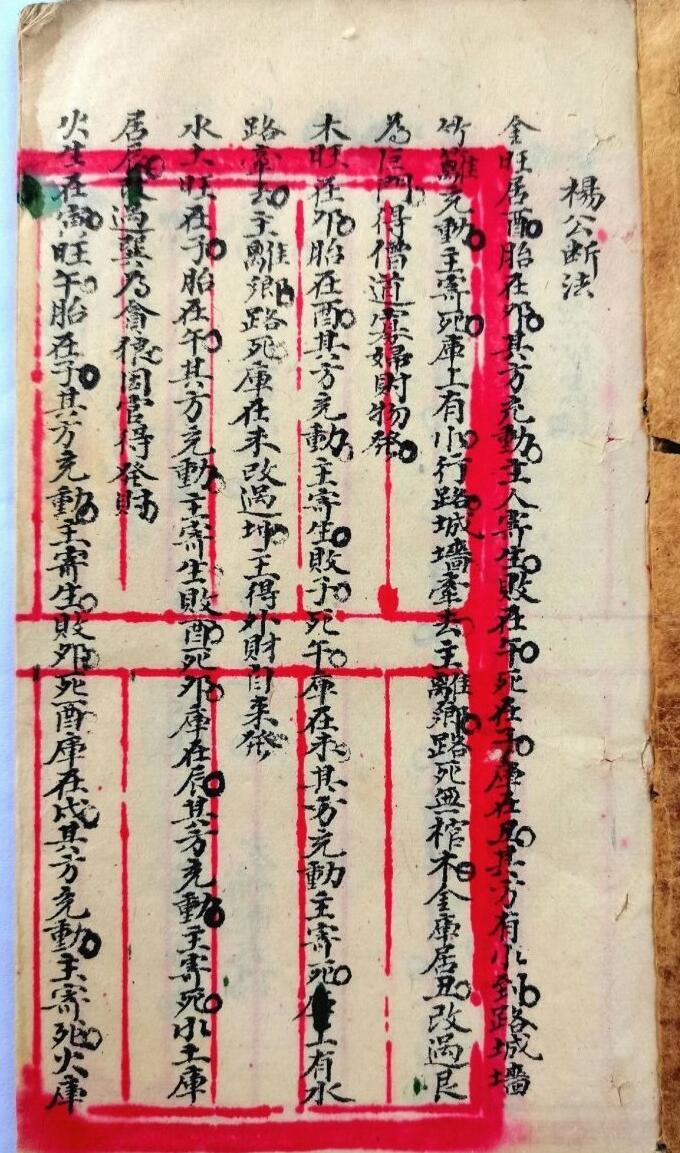 楊公断法
金旺居酉胎在卯其方充動主人寄生敗在午死在子庫在丑其方有水到路城墻
竹籬充動主寄死庫上有水行路城墻牽去主離鄉路死無棺木金庫居丑改過艮
為得僧道寡婦財物発
木旺在卯胎在酉其方充動主寄生敗子死午庫在未其方充動主寄死庫上有水
路牽去主離鄉路死庫在未改過坤主得外財自来発
水土旺在子胎在午其方充動主寄生敗酉死卯庫在辰其方充動主寄死水土庫
居辰改過巽乃會德因官得発財
火生在寅旺午胎在子其方充動主寄生敗卯死酉庫在戌其方充動主寄死火庫